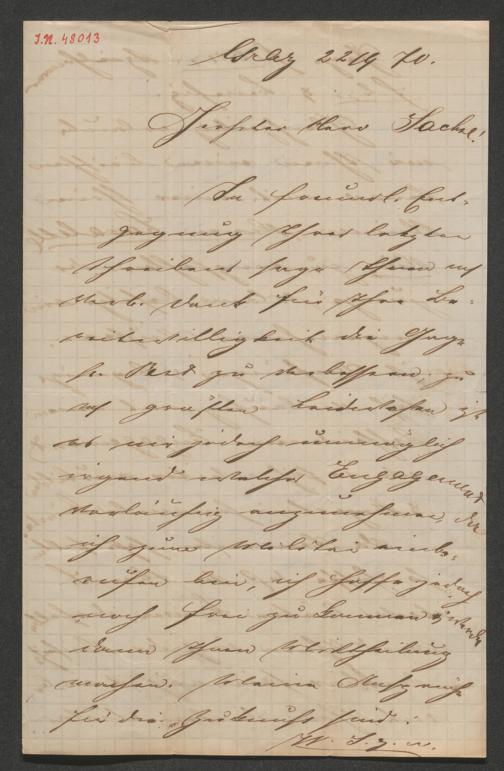 I.N. 48013
Graz 22/9 70.
Geehrter Herr Sachse!
In freundl. Ent-
gegnung Ihres letzten
Schreibens sage Ihnen
verb. Dank für Ihre Be-
reitwilligkeit die Gage
zu verbessern, zu
größten Leidwesen ist
es mir jedoch unmöglich
irgend welches Engagement
vorläufig anzunehmen, da
ich zum Militär einbe-
rufen bin, ich hoffe jedoch
noch frei zu kommen u. werde
dann Ihnen Mittheilung
machen. Meine Ansprüche
für die Zukunft sind: